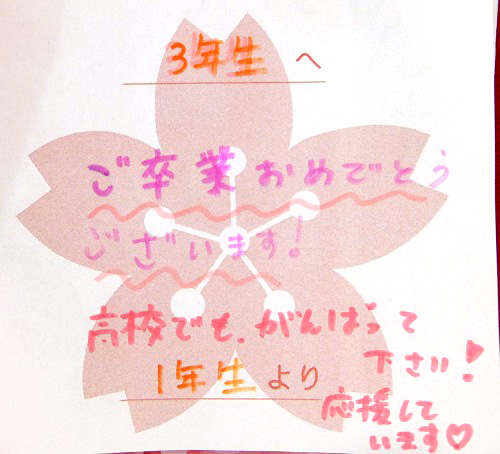 3年生 へ
ご卒業おめでとう
ございます!
高校でも、がんばって
下さい!
1年生 より
応援して
います♡